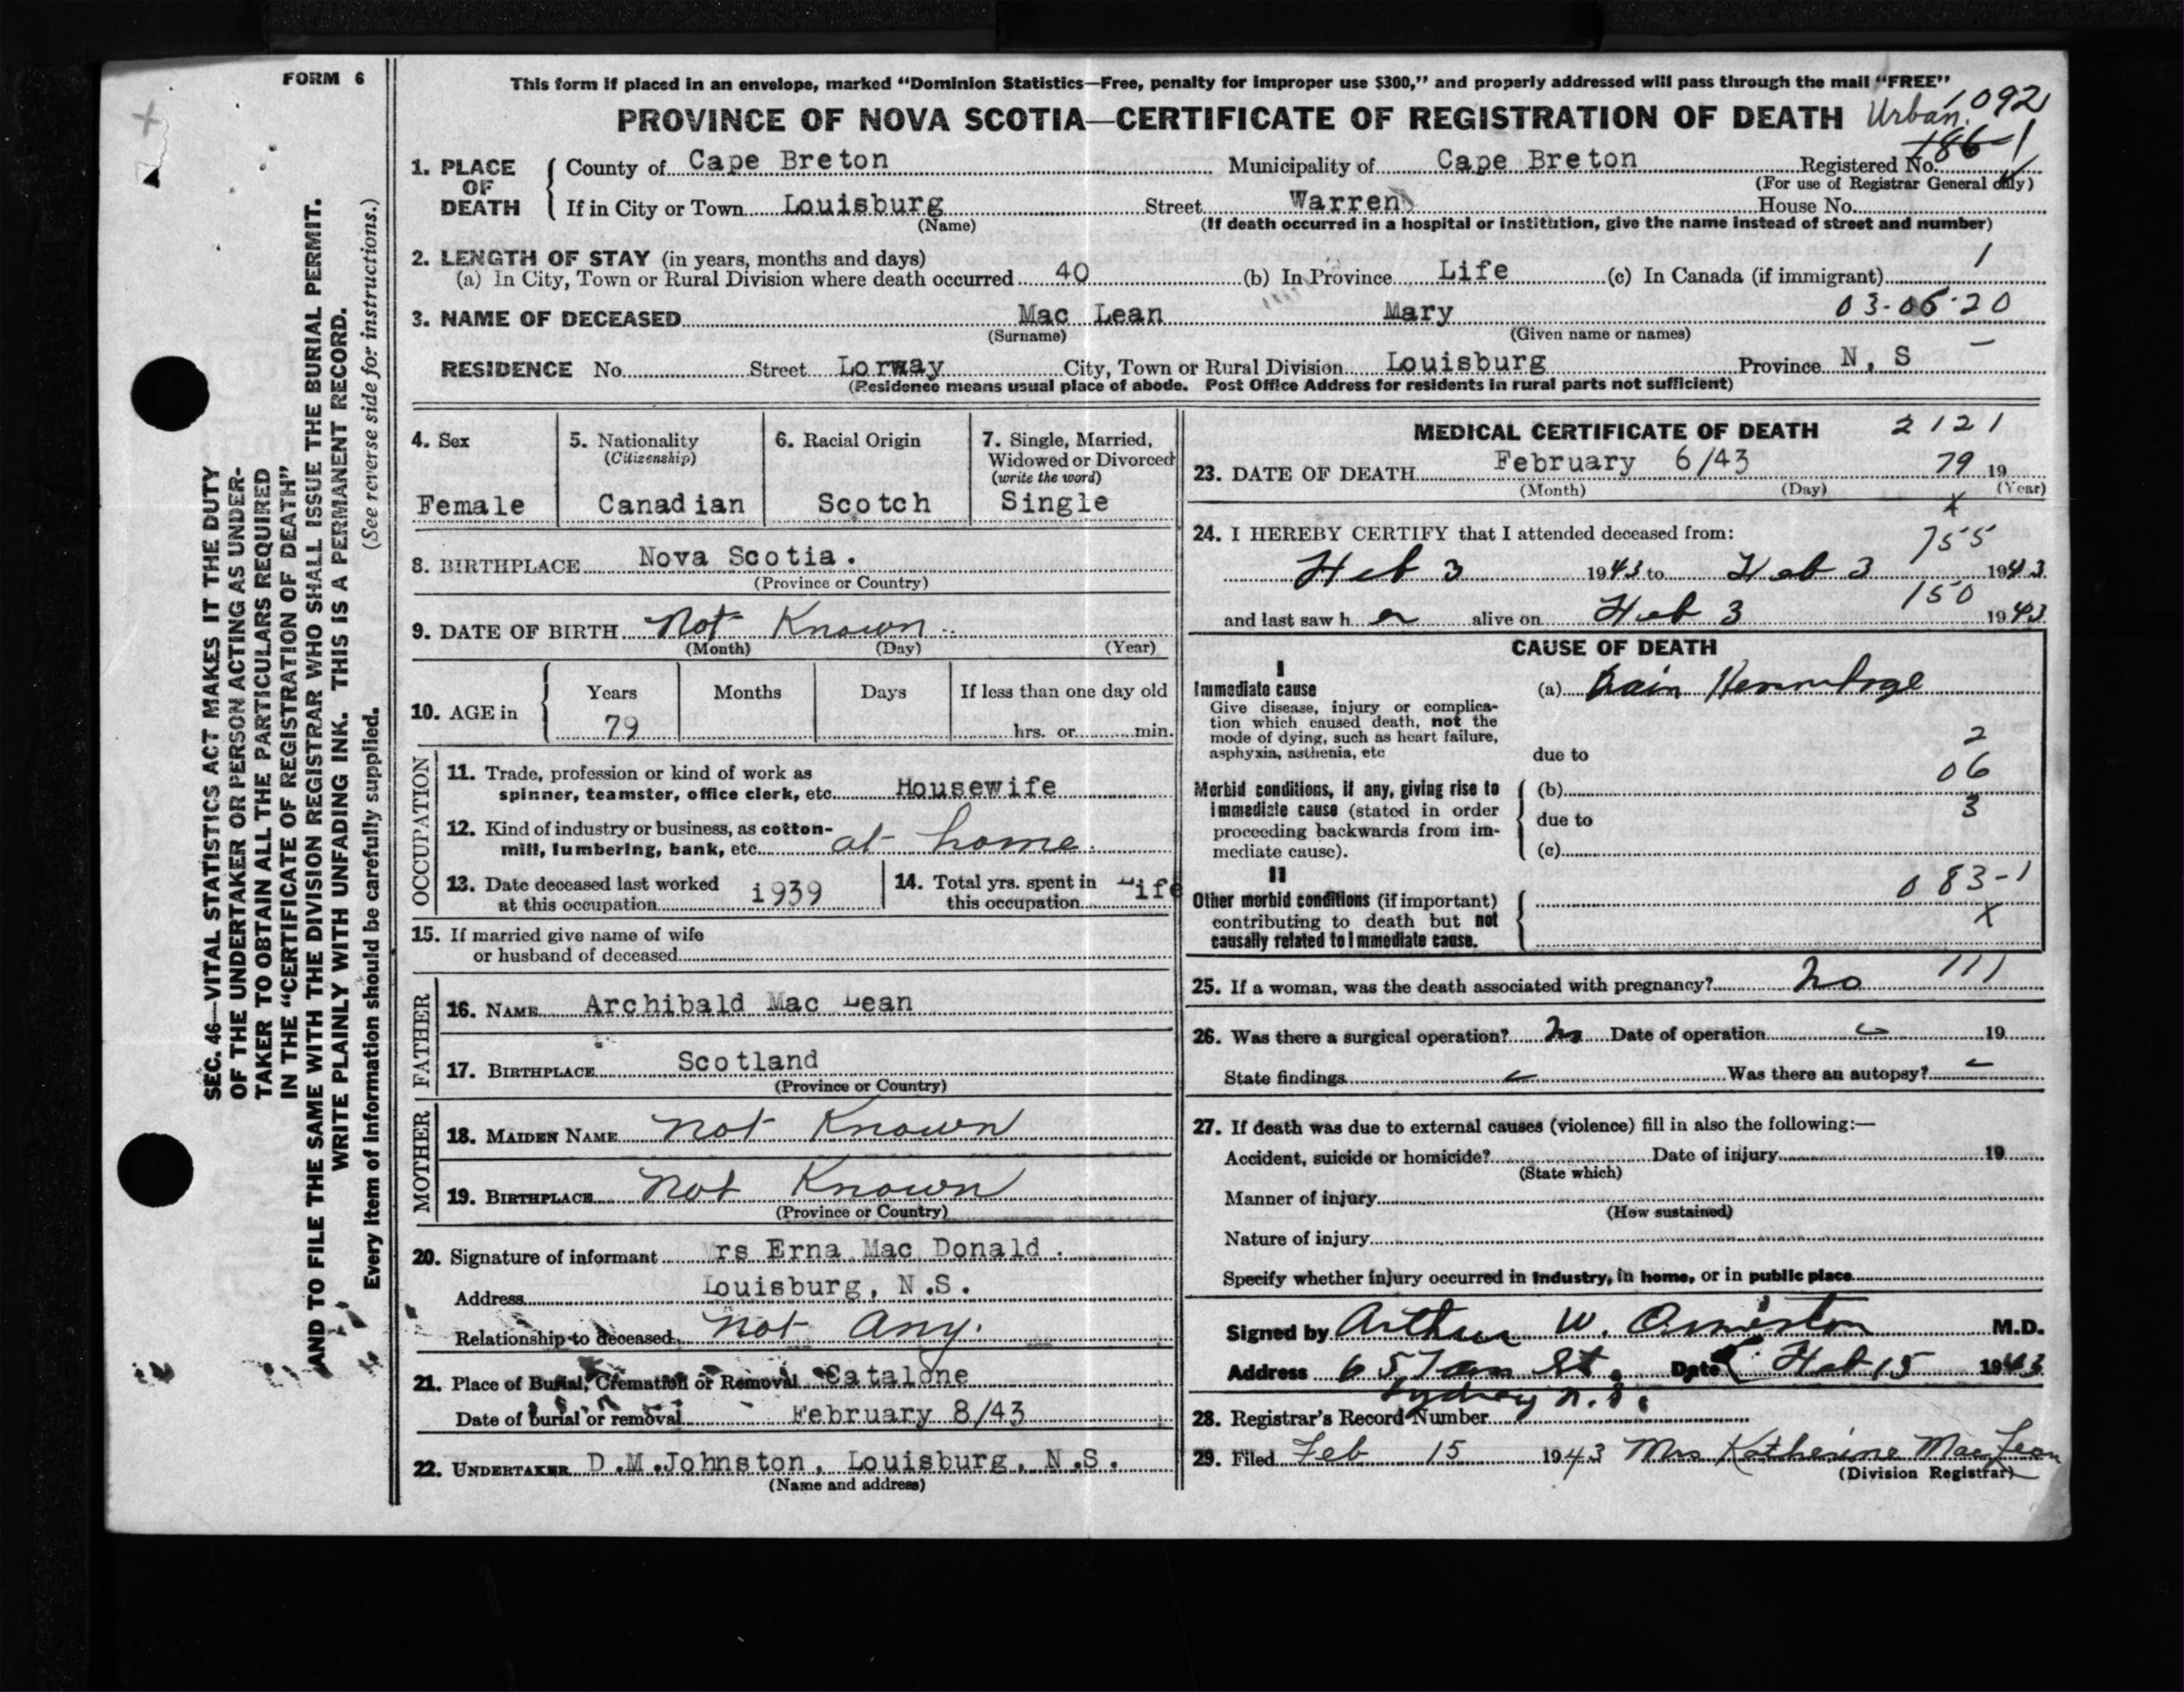 FORM 6
This form if placed in an envelope, marked “Dominion Statistics—Free, penalty for improper use $300,” and properly addressed will pass through the mail “FREE”
PROVINCE OF NOVA SCOTIA—CERTIFICATE OF REGISTRATION OF DEATH Urban. 1092
186-1
1. PLACE OF DEATH { County of Cape Breton Municipality of Cape Breton Registered No.
(For use of Registrar General only)
If in City or Town Louisburg Street Warren House No.
(Name) (If death occurred in a hospital or institution, give the name instead of street and number)
2. LENGTH OF STAY (in years, months and days) 1
(a) In City, Town or Rural Division where death occurred 40 (b) In Province Life (c) In Canada (if immigrant)
3. NAME OF DECEASED Mac Lean Mary 03-06-20
(Surname) (Given name or names)
RESIDENCE No. Street Lorway City, Town or Rural Division Louisburg Province N, S —
(Residence means usual place of abode. Post Office Address for residents in rural parts not sufficient)
4. Sex
Female
5. Nationality
(Citizenship)
Canadian
6. Racial Origin
Scotch
7. Single, Married,
Widowed or Divorced
(write the word)
Single
8. BIRTHPLACE Nova Scotia.
(Province or Country)
9. DATE OF BIRTH Not Known
(Month) (Day) (Year)
10. AGE in { Years Months Days If less than one day old
79 hrs. or min.
OCCUPATION
11. Trade, profession or kind of work as
spinner, teamster, office clerk, etc. Housewife
12. Kind of industry or business, as cotton-
mill, lumbering, bank, etc. at home.
13. Date deceased last worked
at this occupation 1939
14. Total yrs. spent in
this occupation Life
15. If married give name of wife
or husband of deceased
FATHER
16. NAME Archibald Mac Lean
17. BIRTHPLACE Scotland
(Province or Country)
MOTHER
18. MAIDEN NAME Not Known
19. BIRTHPLACE Not Known
(Province or Country)
20. Signature of informant Mrs Erna Mac Donald.
Address Louisburg, N.S.
Relationship to deceased Not Any.
21. Place of Burial, Cremation or Removal Catalone
Date of burial or removal February 8/43
22. UNDERTAKER D.M.Johnston, Louisburg, N.S.
(Name and address)
MEDICAL CERTIFICATE OF DEATH 2121
23. DATE OF DEATH February 6/43 79 19
(Month) (Day) (Year)
x
24. I HEREBY CERTIFY that I attended deceased from: 755
Feb 3 1943 to Feb 3 1943
150
and last saw h er alive on Feb 3 1943
CAUSE OF DEATH
I
Immediate cause (a) Brain Hemorhage
Give disease, injury or complica-
tion which caused death, not the
mode of dying, such as heart failure,
asphyxia, asthenia, etc due to 2
06
Morbid conditions, if any, giving rise to (b)
immediate cause (stated in order due to 3
proceeding backwards from im-
mediate cause). (c)
II
Other morbid conditions (if important) 083-1
contributing to death but not X
causally related to immediate cause.
25. If a woman, was the death associated with pregnancy? No 111
26. Was there a surgical operation? No Date of operation 19
State findings Was there an autopsy?
27. If death was due to external causes (violence) fill in also the following:—
Accident, suicide or homicide? Date of injury 19
(State which)
Manner of injury
(How sustained)
Nature of injury
Specify whether injury occurred in industry, in home, or in public place
Signed by Arthur W. Ormiston M.D.
Address St. Date Feb 15 1943
Sydney N.S.
28. Registrar’s Record Number
29. Filed Feb 15 1943 Mrs Katherine MacLean
(Division Registrar)
SEC. 46—VITAL STATISTICS ACT MAKES IT THE DUTY
OF THE UNDERTAKER OR PERSON ACTING AS UNDER-
TAKER TO OBTAIN ALL THE PARTICULARS REQUIRED
IN THE “CERTIFICATE OF REGISTRATION OF DEATH”
AND TO FILE THE SAME WITH THE DIVISION REGISTRAR WHO SHALL ISSUE THE BURIAL PERMIT.
WRITE PLAINLY WITH UNFADING INK. THIS IS A PERMANENT RECORD.
Every item of information should be carefully supplied. (See reverse side for instructions.)